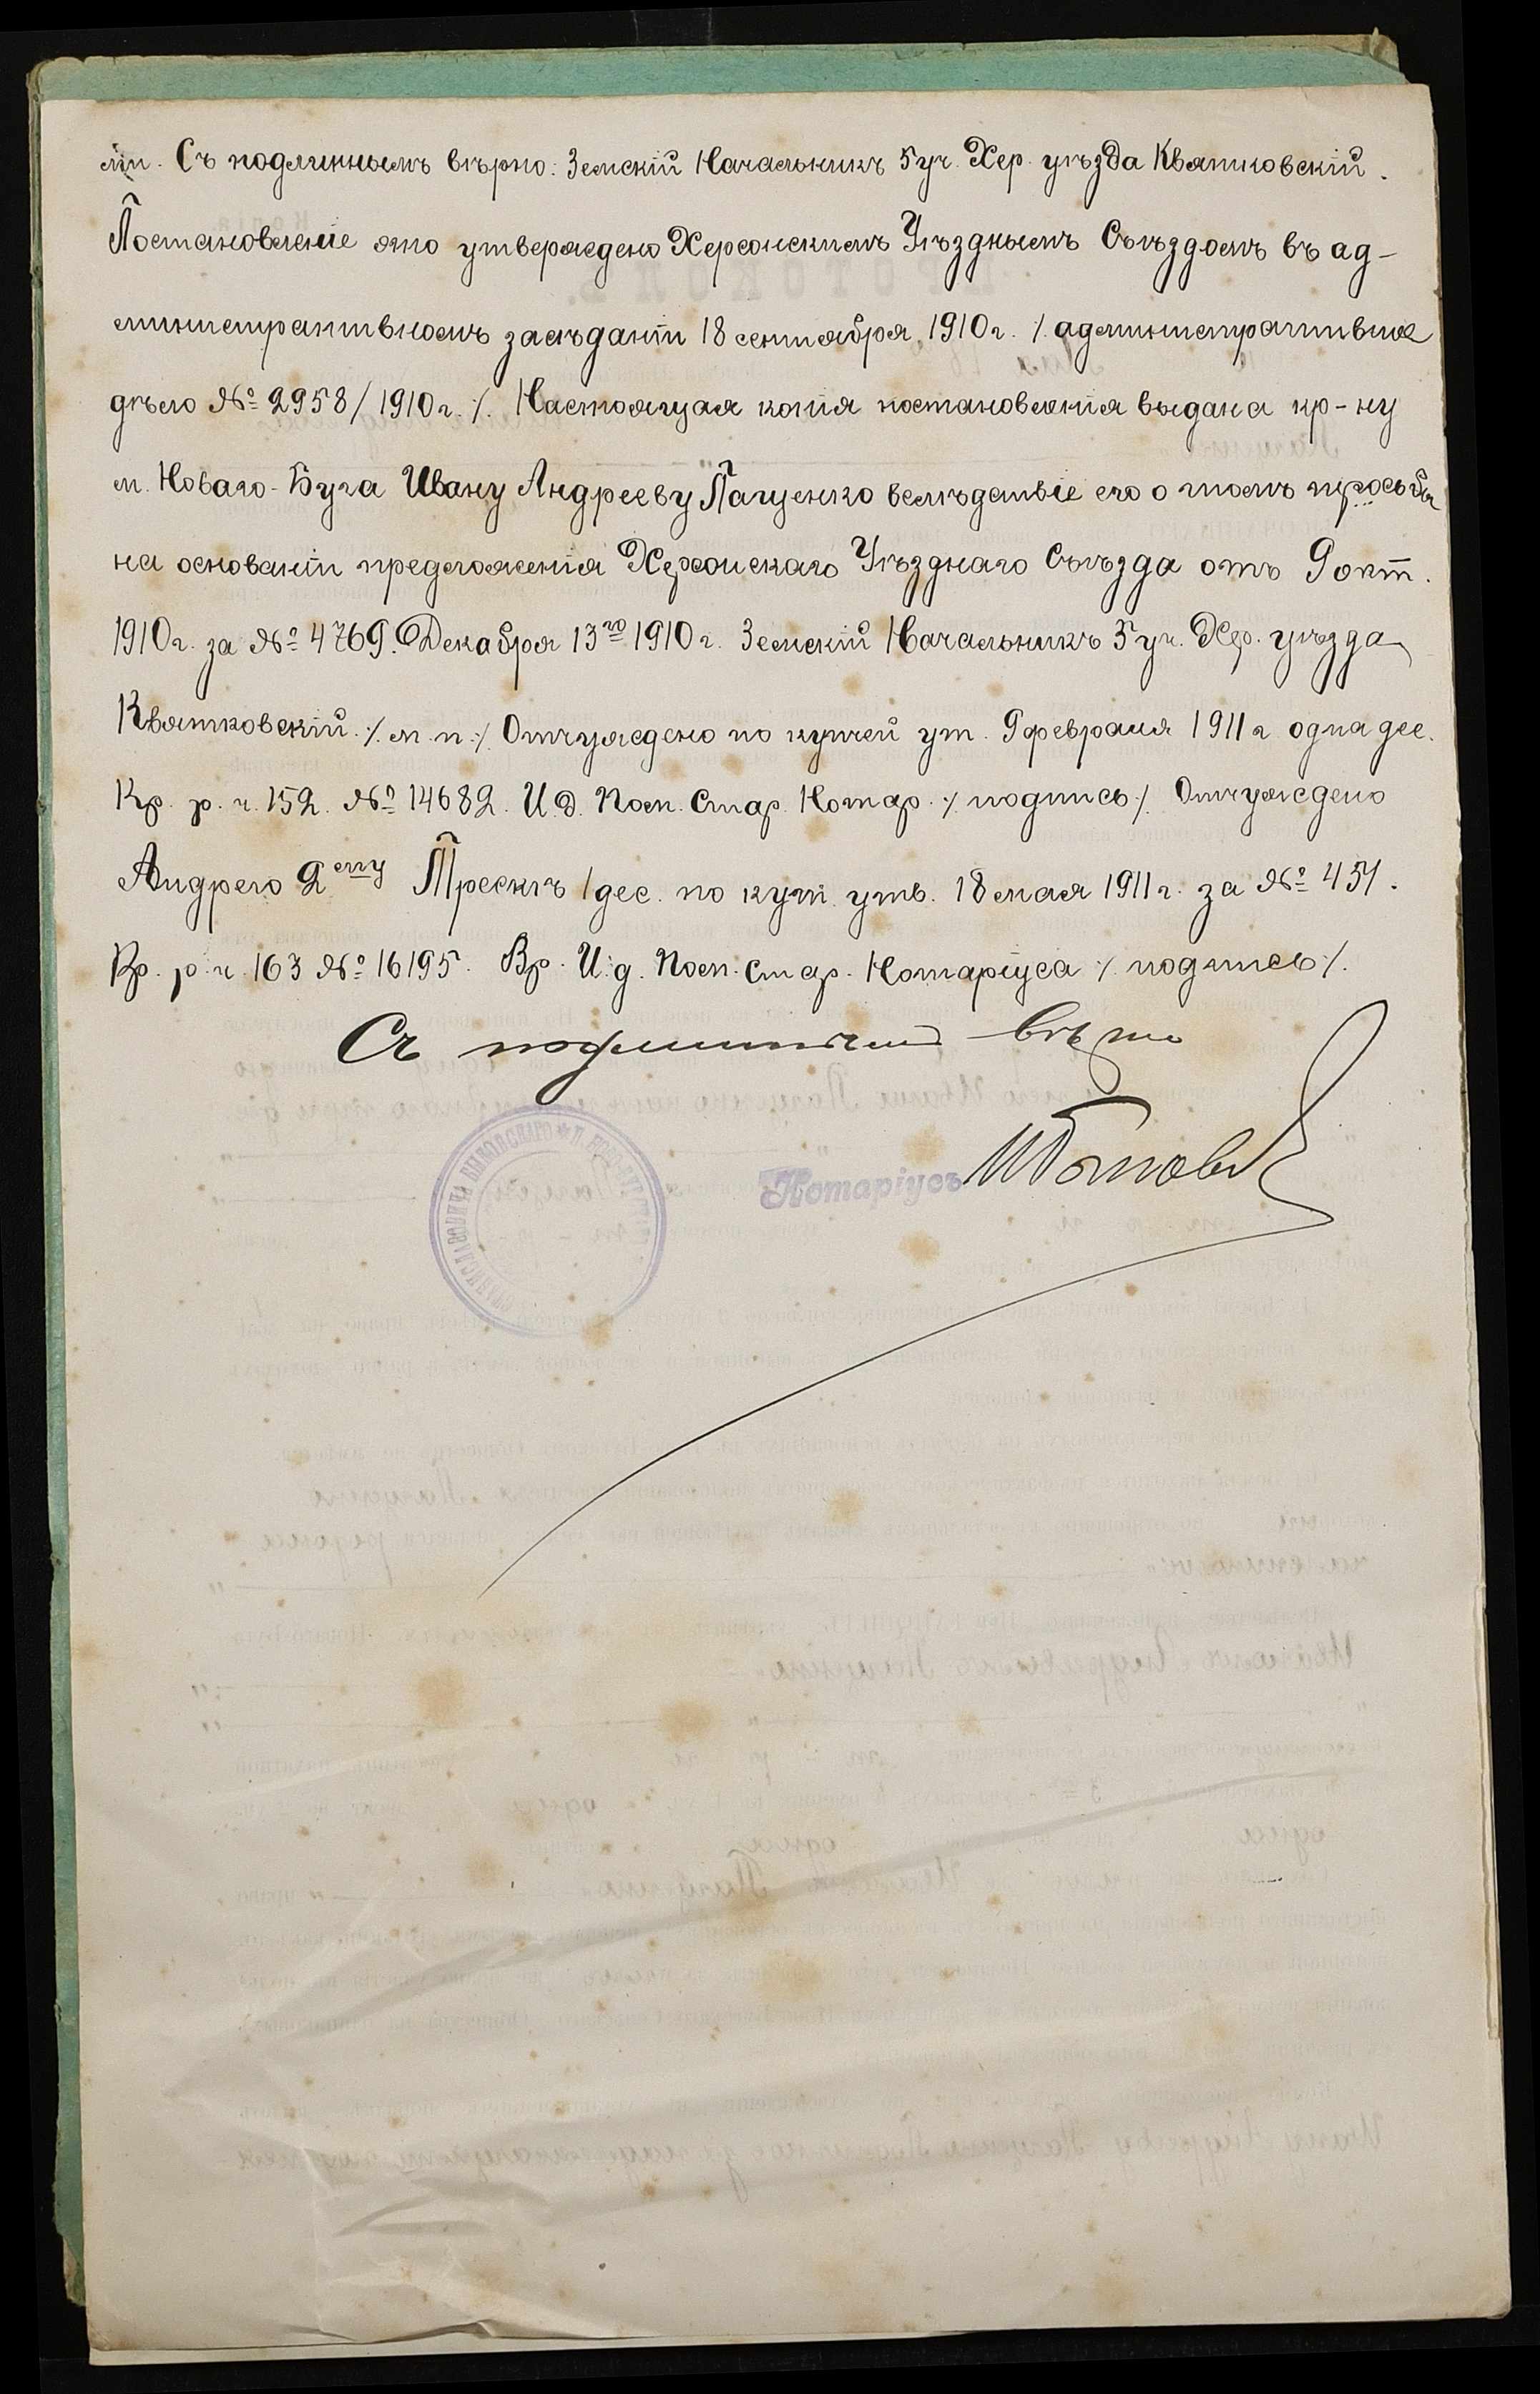 ми. Съ подлиннымъ вѣрно: Земскій Начальникъ 5 уч. Хер. уѣзда Квятковскій.
Постановленіе это утверждено Херсонскимъ Уѣзднымъ Съѣздомъ въ ад-
министративномъ засѣданіи 18 сентября 1910 г. /. административное
дѣло № 2958/1910 г. /. Настоящая копія постановленія выдана кр-ну
м. Новаго-Буга Ивану Андрееву Пащенко вслѣдствіе его о томъ просьбы
на основаніи предложенія Херсонскаго Уѣзднаго Съѣзда отъ 9 окт.
1910 г. за № 4769. Декабря 13го 1910 г. Земскій Начальникъ 5 уч. Хер. уѣзда
Квятковскій. /. м. п. /. Отчуждено по купчей ут. 9 февраля 1911 г одна дес.
Кр. р. ч. 152. № 14682. И. Д. Пом. Стар. Нотар. /. подпись /. Отчуждено
Андрею 2ему 1 дес. по купч. утв. 18 мая 1911 г. за № 451.
Кр. р. ч. 163 № 16195. Вр. И. д. Пом. Стар. Нотаріуса /. подпись /.
Съ подлиннымъ вѣрно
Нотаріусъ